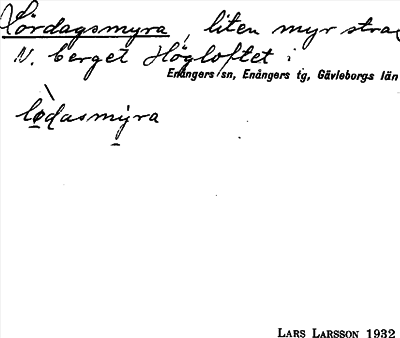 Lördagsmyra, liten myr strax
N. berget Högloftet i
Enångers sn, Enångers tg, Gävleborgs län
lo̲dasmy̲ra
LARS LARSSON 1932